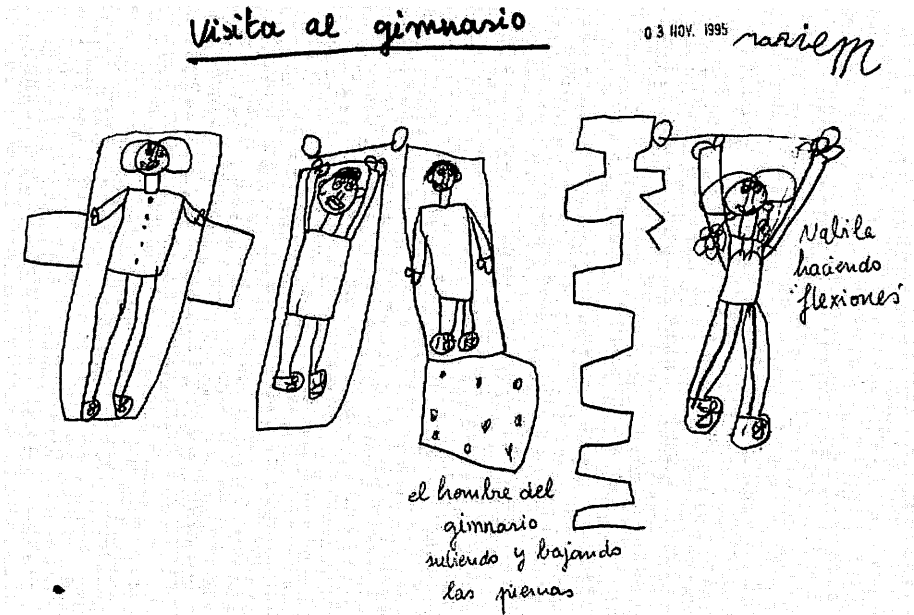 Visita al gimnasio
03 NOV. 1995
mariem
Nabila
haciendo
"flexiones"
el hombre del
gimnasio
subiendo y bajando
las piernas